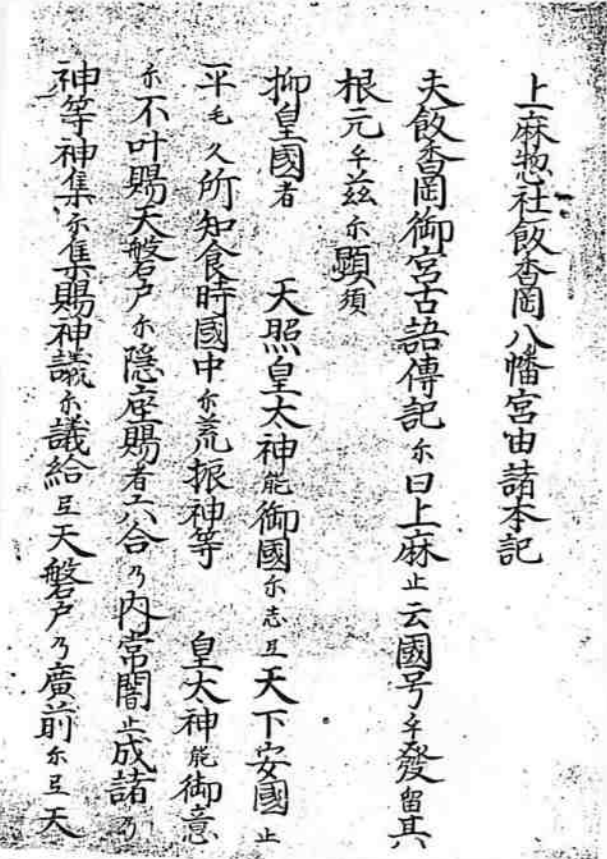 上麻惣社飯香岡八幡宮由諸本記
夫飯香岡御宮古語傳記尓曰上麻止云國号乎發留其
根元乎茲尓顕須
抑皇國者 天照皇太神能御國尓志弖天下安國止
平毛久所知食時國中尓荒振神等 皇大神能御意
尓不叶賜天磐戸尓隠座賜者六合乃内常闇止成諸乃
神等神集尓集賜神議尓議給弖天磐戸乃廣前尓弖天